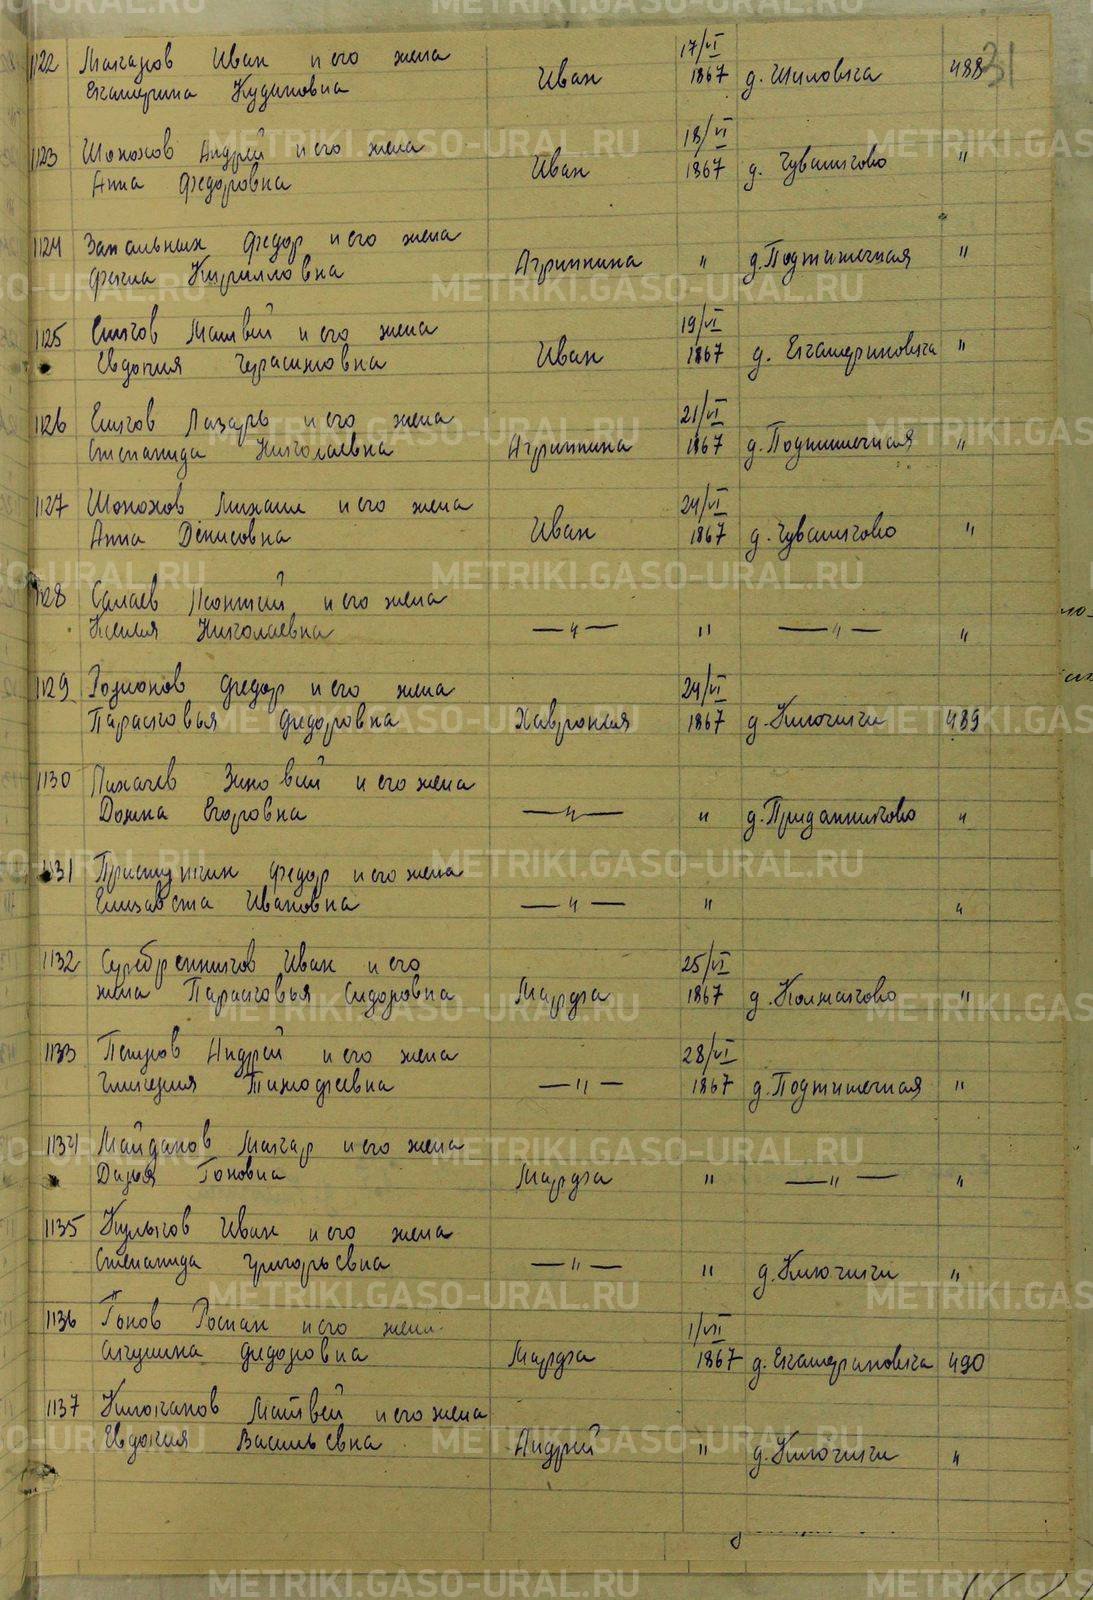 31
1122 Макаров Иван и его жена
Екатерина Кудиновна Иван 17/VI 1867 д. Шиловка 488
1123 Шонохов Андрей и его жена
Анна Федоровна Иван 18/VI 1867 д. Чувашково "
1124 Запальных Федор и его жена
Фекла Кирилловна Агриппина " д. Подтишечная "
1125 Матвей и его жена
Евдокия Герасимовна Иван 19/VI 1867 д. Екатериновка "
1126 Лазарь и его жена
Степанида Николаевна Агриппина 21/VI 1867 д. Подтишечная "
1127 Шонохов Михаил и его жена
Анна Денисовна Иван 24/VI 1867 д. Чувашково "
1128 Салаев Леонтий и его жена
Ксения Николаевна — " — " — " — "
1129 Родионов Федор и его жена
Парасковья Федоровна Хаврония 24/VI 1867 д. Ключики 489
1130 Лихачев Зиновий и его жена
Домна Егоровна — " — " д. Приданниково "
1131 Федор и его жена
Елизавета Ивановна — " — " "
1132 Серебренников Иван и его
жена Парасковья Сидоровна Марфа 25/VI 1867 д. Колмаково "
1133 Петров Андрей и его жена
Гликерия Тимофеевна — " — 28/VI 1867 д. Подтишечная "
1134 Майданов Макар и его жена
Дарья Марфа " — " — "
1135 Кулыков Иван и его жена
Степанида Григорьевна — " — " д. Ключики "
1136 Роман и его жена
Акулина Федоровна Марфа 1/VII 1867 д. Екатериновка 490
1137 Матвей и его жена
Евдокия Васильевна Андрей " д. Ключики "
METRIKI.GASO-URAL.RU